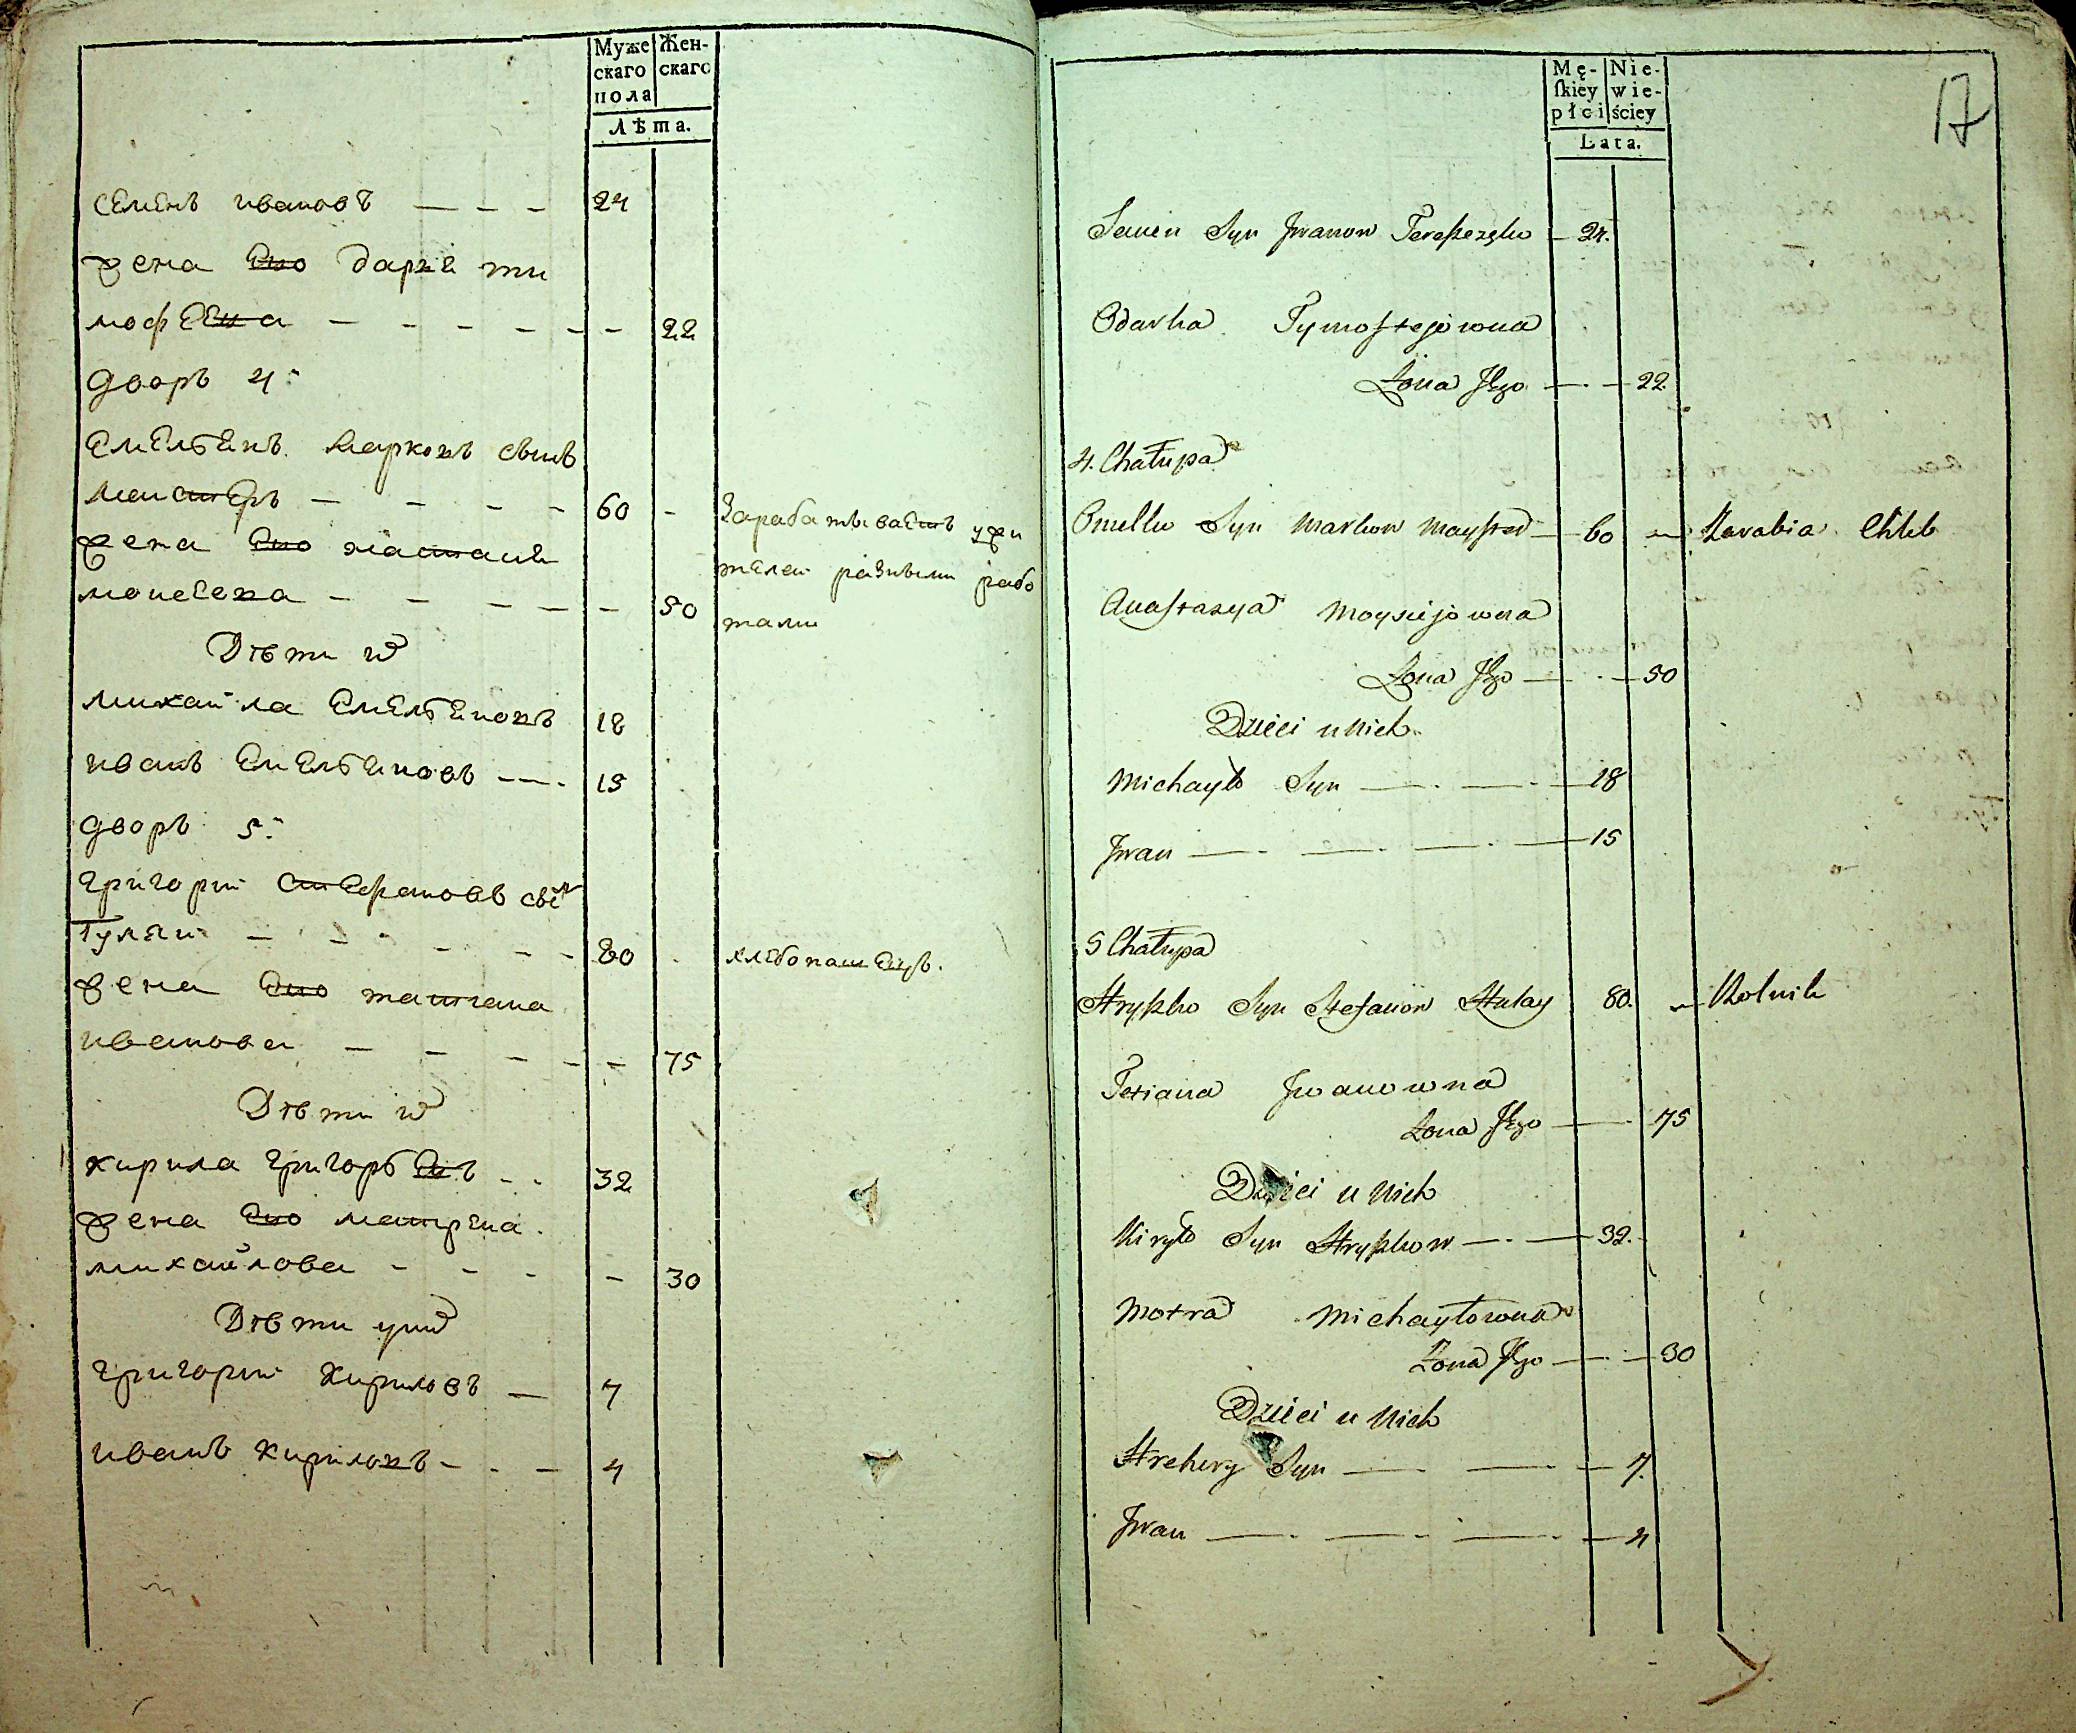 Муже
скаго
пола
Жен-
скаго
Лѣта.
Семенъ ивановъ — — — 24
жена Его дарiя ти
мофеева — — — — — — 22
дворъ 4:
Емельянъ Марковъ сынъ
майстеръ — — — — 60 - Зарабатываетъ ужи
жена Его настасия телей разными рабо
моисеева — — — — — 50 тами
Дѣти их
михайла Емельяновъ 18
иванъ Емельяновъ — — . 15
дворъ 5:
григорий Стефановъ сын
Гулай — — — — — 80 . хлебопашецъ.
жена Его татiана
иванова — — — — — 75
Дѣти их
кирила григорьевъ - . 32
жена Его матрена .
михайлова - - - — 30
Дѣти у них
григорий Кириловъ — 7
иванъ кириловъ - . — 4
17
Mę-
skiey
płci
Nie-
wie-
ściey
Lata.
Semen Syn Jwanow — 24.
Odarka Tymoftejowna
Żona Jego — . — 22
4. Chałupa
Omelko Syn Markow Mayster — 60 — Zarabia Chleb
Anastazya Moysiejowna
Żona Jego — . — 50
Dzieci u Nich
Michayło Syn — . — . — 18
Jwan — . — . — . — 15
5 Chałupa
Hryćko Syn Stefanow Hulay 80. — Rolnik
Tetiana Jwanowna
Żona Jego — . 75
Dzieci u Nich
Kiryło Syn Hryćkow — . — 32.
Motra Michayłowna
Żona Jego — . — 30
Dzieci u Nich
Hrehory Syn — — . — 7.
Jwan — . — . — . — 4